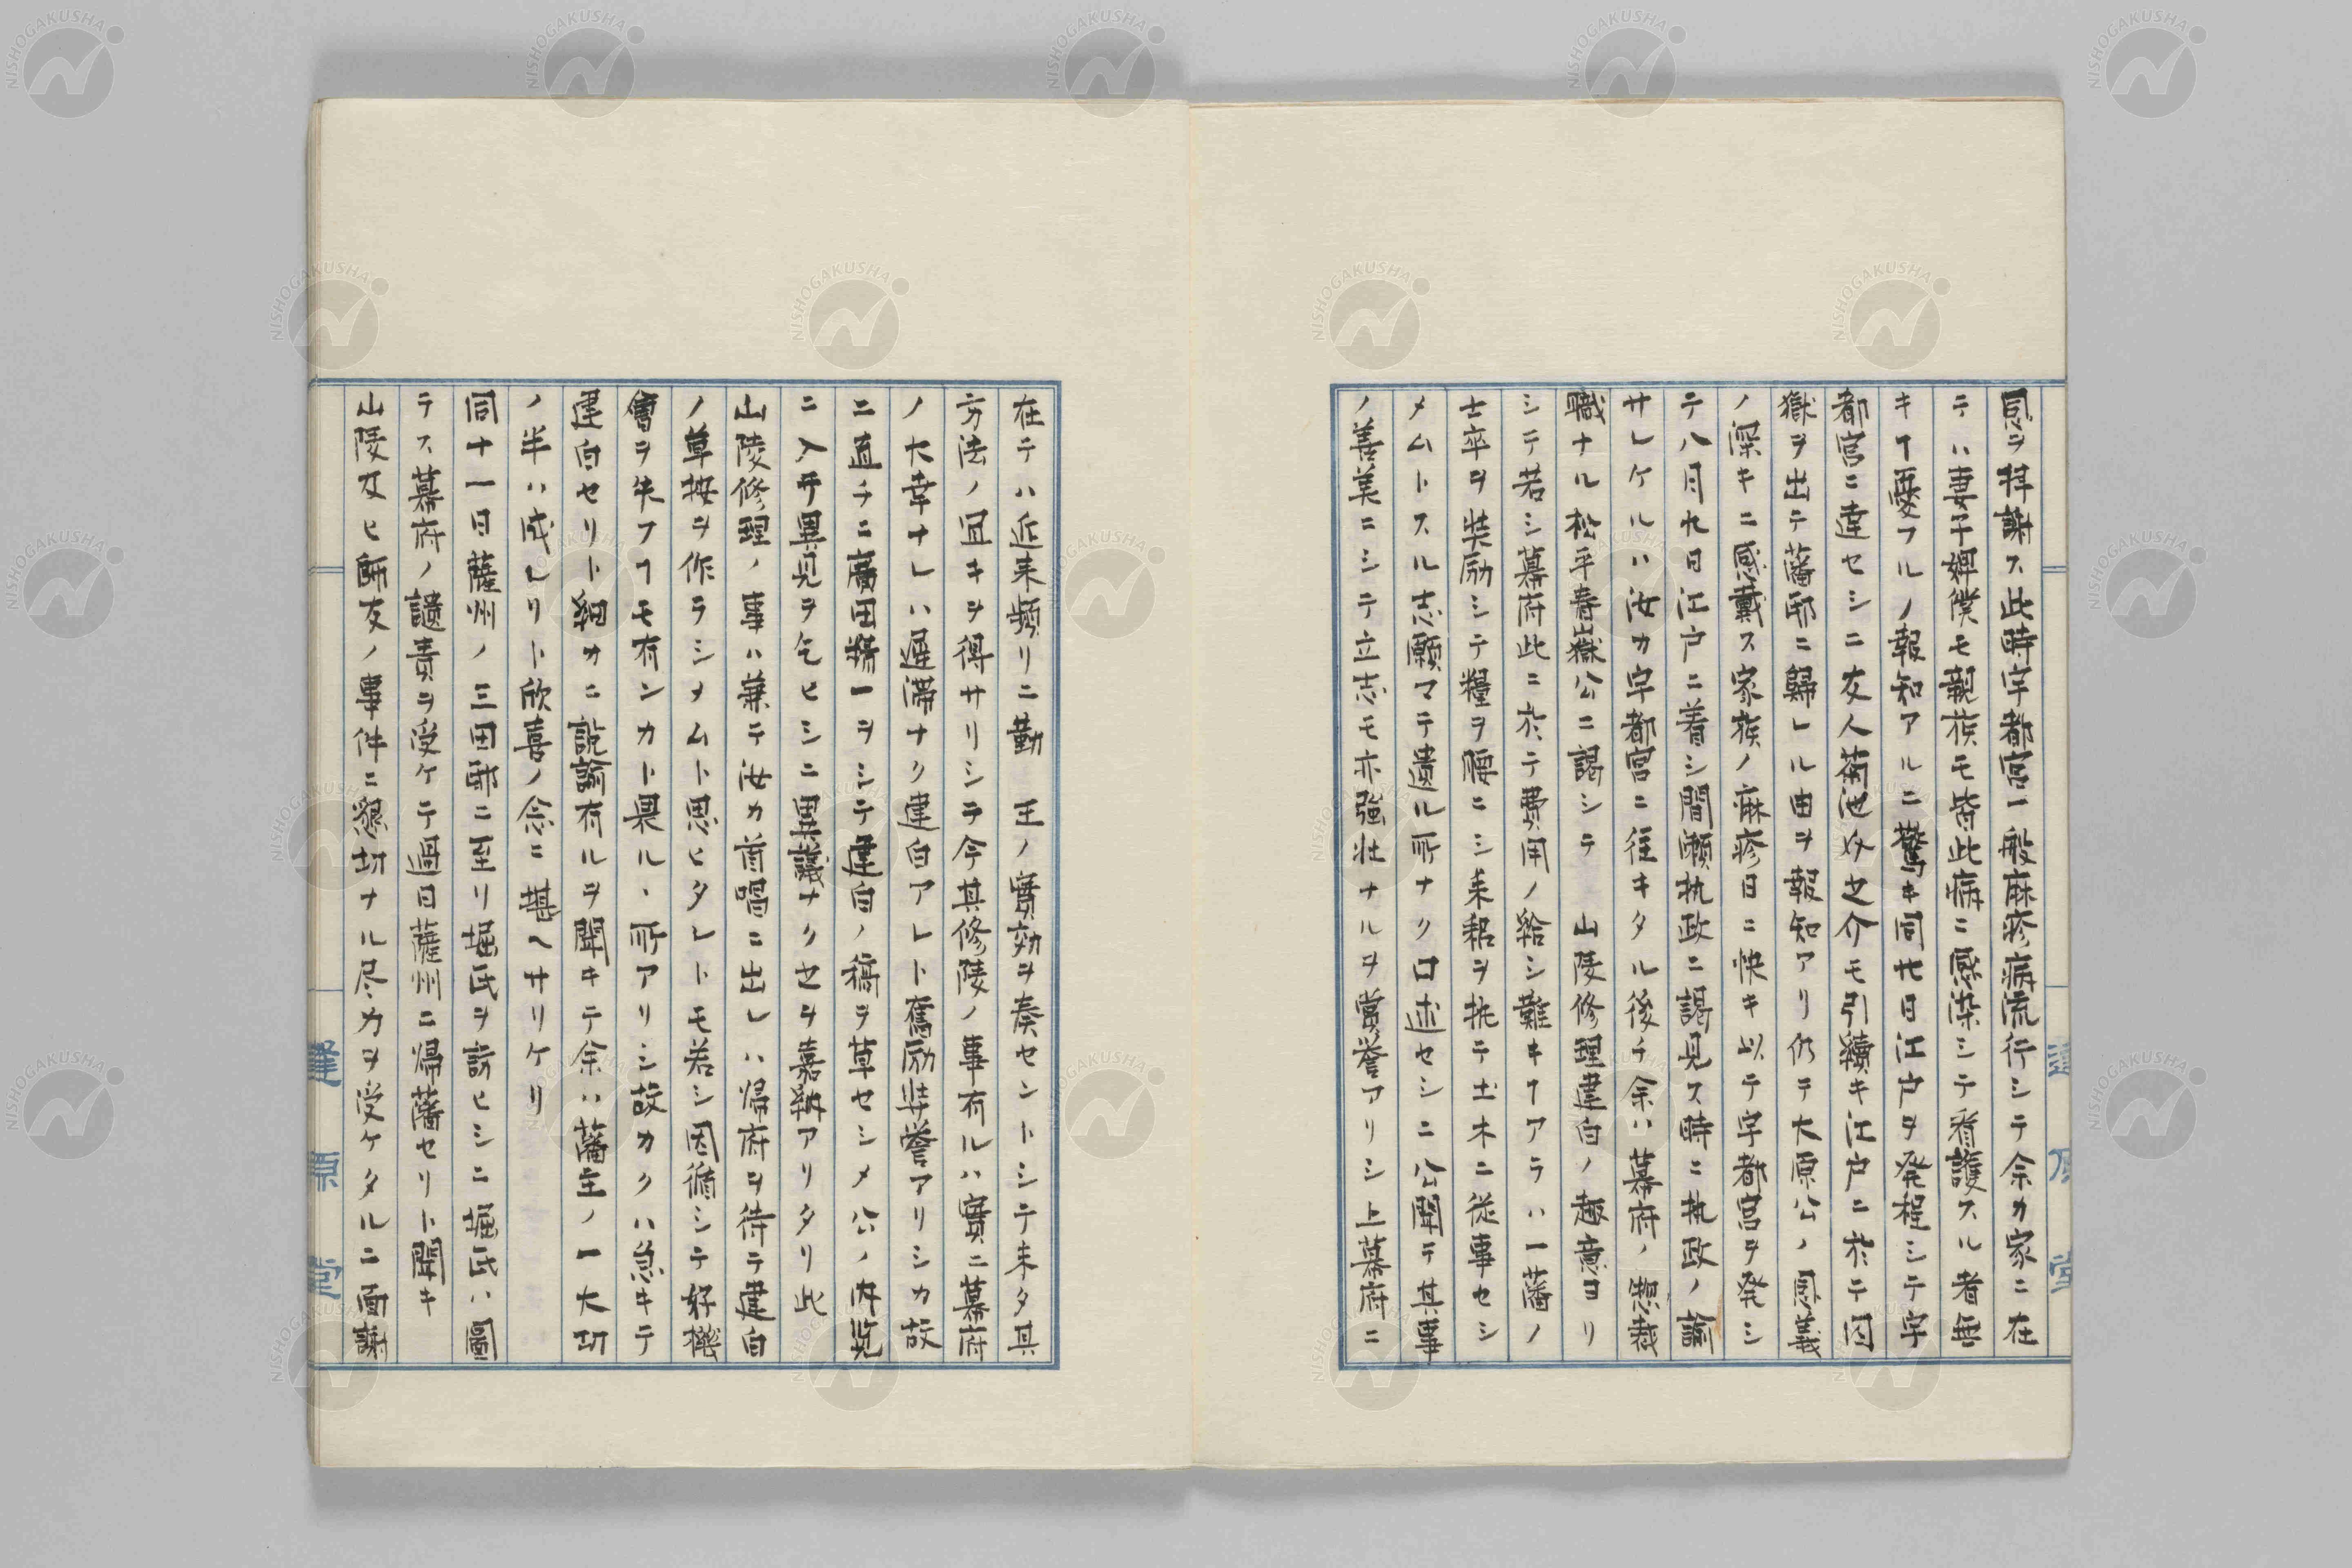 恩ヲ拝謝ス此時宇都宮一般麻疹病流行シテ余カ家ニ在
テハ妻子婢僕モ親族モ皆此病ニ感染シテ看護スル者無
キヿ憂フルノ報知アルニ驚キ同廿日江戸ヲ発程シテ宇
都宮ニ達セシニ友人菊池介モ引續キ江戸ニ於テ囚
獄ヲ出テ藩邸ニ歸レル由ヲ報知アリ仍テ大原公ノ恩義
ノ深キニ感戴ス家族ノ麻疹日ニ快キ以テ宇都宮ヲ発シ
テ八月九日江戸ニ着シ間瀬執政ニ謁見ス時ニ執政ノ諭
サレケルハ汝カ宇都宮ニ往キタル後チ余ハ幕府ノ惣裁
職ナル松平春嶽公ニ謁シテ 山陵修理建白ノ趣意ヨリ
シテ若シ幕府此ニ於テ費用ノ給シ難キヿアラハ一藩ノ
士卒ヲ奨励シテ糧ヲ腰ニシ耒耜ヲ執テ土木ニ従事セシ
メムトスル志願マテ遺ル所ナク口述セシニ公聞テ其事
ノ善美ニシテ立志モ亦強壮ナルヲ賞誉アリシ上幕府ニ
在テハ近来頻リニ勤 王ノ實効ヲ奏セントシテ未タ其
方法ノ宜キヲ得サリシテ今其修陵ノ事有ルハ實ニ幕府
ノ大幸ナレハ遅滞ナク建白アレト奮励奨誉アリシカ故
ニ直チニ廣田精一ヲシテ建白ノ稿ヲ草セシメ公ノ内覧
ニ入テ異見ヲ乞ヒシニ異議ナクセヲ嘉納アリタリ此
山陵修理ノ事ハ兼テ汝カ首唱ニ出レハ帰府ヲ待テ建白
ノ草按ヲ作ラシメムト思ヒタレトモ若シ因循シテ好機
會ヲ失フヿモ有ンカト畏ル丶所アリシ故カクハ急キテ
建白セリト細カニ説諭有ルヲ聞キテ余ハ藩主ノ一大切
ノ半ハ成レリト欣喜ノ念ニ堪ヘサリケリ
同十一日薩州ノ三田邸ニ至リ堀氏ヲ訪ヒシニ堀氏ハ圖
ラス幕府ノ譴責ヲ受ケテ過日薩州ニ帰藩セリト聞キ
山陵及ヒ師友ノ事件ニ懇切ナル尽力ヲ受ケタルニ面謝
蓬原堂